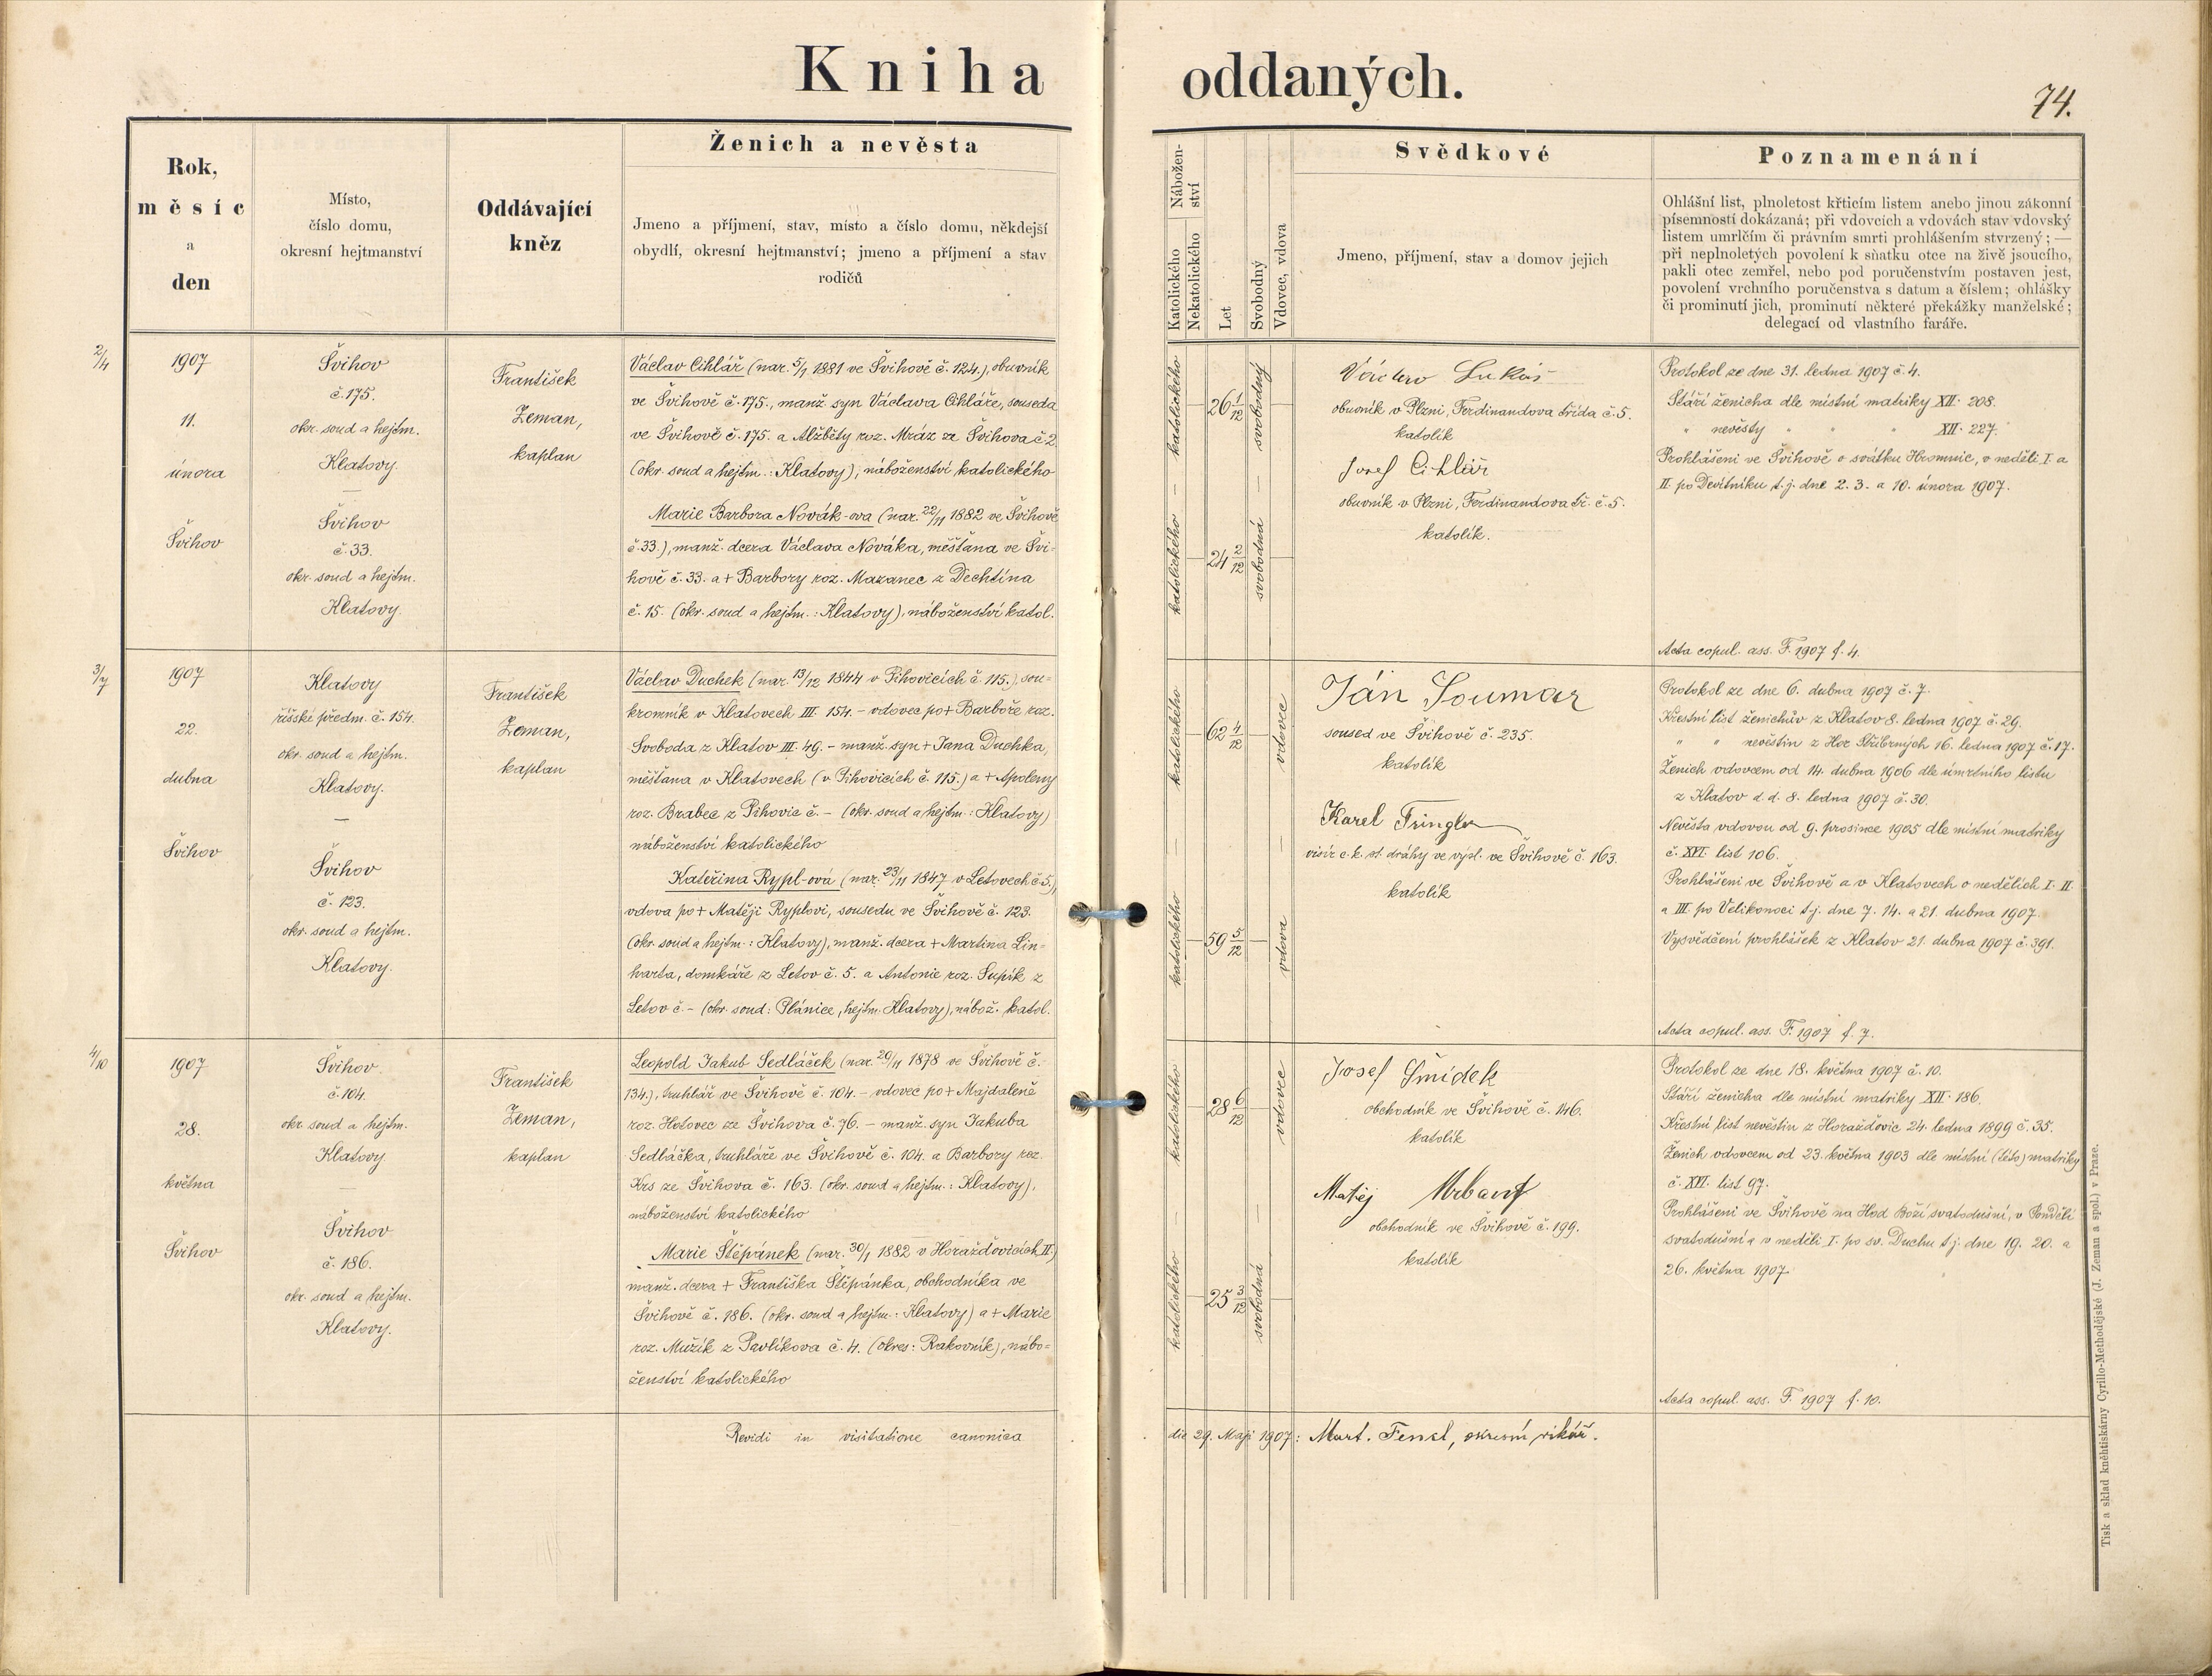 Kniha oddaných.
74.
Rok,
měsíc
a
den
Místo,
číslo domu,
okresní hejtmanství
Oddávající
kněz
Ženich a nevěsta
Jmeno a příjmení, stav, místo a číslo domu, někdejší
obydlí, okresní hejtmanství; jmeno a příjmení a stav
rodičů
Nábožen-
ství
Katolického
Nekatolického
Let
Svobodný
Vdovec, vdova
Svědkové
Jmeno, příjmení, stav a domov jejich
Poznamenání
Ohlášní list, plnoletost křticím listem anebo jinou zákonní
písemností dokázaná; při vdovcích a vdovách stav vdovský
listem umrlčím či právním smrti prohlášením stvrzený; —
při neplnoletých povolení k sňatku otce na živě jsoucího,
pakli otec zemřel, nebo pod poručenstvím postaven jest,
povolení vrchního poručenstva s datum a číslem; ohlášky
či prominutí jich, prominutí některé překážky manželské;
delegací od vlastního faráře.
2/4
1907
11.
února
Švihov
Švihov
č. 175.
okr. soud a hejtm.
Klatovy.
—
Švihov
č. 33.
okr. soud a hejtm.
Klatovy.
František
Zeman,
kaplan
Václav Cihlář (nar. 5/1 1881 ve Švihově č. 124.), obuvník
ve Švihově č. 175., manž. syn Václava Cihláře, souseda
ve Švihově č. 175. a Alžběty roz. Mráz ze Švihova č. 2
(okr. soud a hejtm.: Klatovy), náboženství katolického
Marie Barbora Novák-ova (nar. 22/11 1882 ve Švihově
č. 33.), manž. dcera Václava Nováka, měšťana ve Švi-
hově č. 33. a + Barbory roz. Mazanec z Dechtína
č. 15. (okr. soud a hejtm.: Klatovy), náboženství katol.
katolického
—
katolického
26 1/12
24 2/12
svobodný
—
svobodná
Václav Lukáš
obuvník v Plzni, Ferdinandova třída č. 5.
katolík
Josef Cihlář
obuvník v Plzni, Ferdinandova tř. č. 5.
katolík.
Protokol ze dne 31. ledna 1907 č. 4.
Stáří ženicha dle místní matriky XII. 208.
" nevěsty " " " XII. 227.
Prohlášeni ve Švihově o svátku Hromnic, v neděli I. a
II. po Devítníku t. j. dne 2. 3. a 10. února 1907.
Acta copul. ass. F. 1907 f. 4.
3/7
1907
22.
dubna
Švihov
Klatovy
říšské předm. č. 154.
okr. soud a hejtm.
Klatovy.
—
Švihov
č. 123.
okr. soud a hejtm.
Klatovy.
František
Zeman,
kaplan
Václav Duchek (nar. 13/12 1844 v Pihovicích č. 115.), sou-
kromník v Klatovech III. 154. - vdovec po + Barboře roz.
Svoboda z Klatov III. 49. - manž. syn + Jana Duchka,
měšťana v Klatovech (v Pihovicích č. 115.) a + Apoleny
roz. Brabec z Pihovic č. - (okr. soud a hejtm.: Klatovy)
náboženství katolického
Kateřina Rypl-ová (nar. 23/11 1847 v Letovech č. 5.),
vdova po + Matěji Ryplovi, sousedu ve Švihově č. 123.
(okr. soud a hejtm.: Klatovy), manž. dcera + Martina Lin-
harta, domkáře z Letov č. 5. a Antonie roz. Supík z
Letov č. - (okr. soud: Plánice, hejtm: Klatovy), nábož. katol.
katolického
—
katolického
62 4/12
59 5/12
vdovec
—
vdova
Ján Soumar
soused ve Švihově č. 235.
katolík
Karel Tringler
visír c. k. st. dráhy ve výsl. ve Švihově č. 163.
katolík
Protokol ze dne 6. dubna 1907 č. 7.
Křestní list ženichův z Klatov 8. ledna 1907 č. 29.
" " nevěstin z Hor Stříbrných 16. ledna 1907 č. 17.
Ženich vdovcem od 14. dubna 1906 dle úmrtního listu
z Klatov d. d. 8. ledna 1907 č. 30.
Nevěsta vdovou od 9. prosince 1905 dle místní matriky
č. XVI. list 106.
Prohlášeni ve Švihově a v Klatovech o nedělích I. II.
a III. po Velikonoci t. j. dne 7. 14. a 21. dubna 1907.
Vysvědčení prohlášek z Klatov 21. dubna 1907 č. 391.
Acta copul. ass. F. 1907 f. 7.
4/10
1907
28.
května
Švihov
Švihov
č. 104.
okr. soud a hejtm.
Klatovy.
—
Švihov
č. 186.
okr. soud a hejtm.
Klatovy.
František
Zeman,
kaplan
Leopold Jakub Sedláček (nar. 20/11 1878 ve Švihově č.
134.), truhlář ve Švihově č. 104. - vdovec po + Majdaleně
roz. Hotovec ze Švihova č. 76. - manž. syn Jakuba
Sedláčka, truhláře ve Švihově č. 104. a Barbory roz.
Krs ze Švihova č. 163. (okr. soud a hejtm.: Klatovy),
náboženství katolického
Marie Štěpánek (nar. 30/1 1882 v Horažďovicích II.)
manž. dcera + Františka Štěpánka, obchodníka ve
Švihově č. 186. (okr. soud a hejtm.: Klatovy) a + Marie
roz. Mužík z Pavlíkova č. 4. (okres: Rakovník), nábo-
ženství katolického
katolického
—
katolického
28 6/12
25 3/12
vdovec
—
svobodná
Josef Šmídek
obchodník ve Švihově č. 146.
katolík
Matěj Urban
obchodník ve Švihově č. 199.
katolík
Protokol ze dne 18. května 1907 č. 10.
Stáří ženicha dle místní matriky XII. 186.
Křestní list nevěstin z Horažďovic 24. ledna 1899 č. 35.
Ženich vdovcem od 23. května 1903 dle místní (této) matriky
č. XVI. list 97.
Prohlášeni ve Švihově na Hod Boží svatodušní, v Pondělí
svatodušní a v neděli I. po sv. Duchu t. j. dne 19. 20. a
26. května 1907.
Acta copul. ass. F. 1907 f. 10.
Revidi in visitatione canonica die 29. Maji 1907: Mart. Fenzl, okresní vikář.
Tisk a sklad kněhtiskárny Cyrillo-Methodějské (J. Zeman a spol.) v Praze.